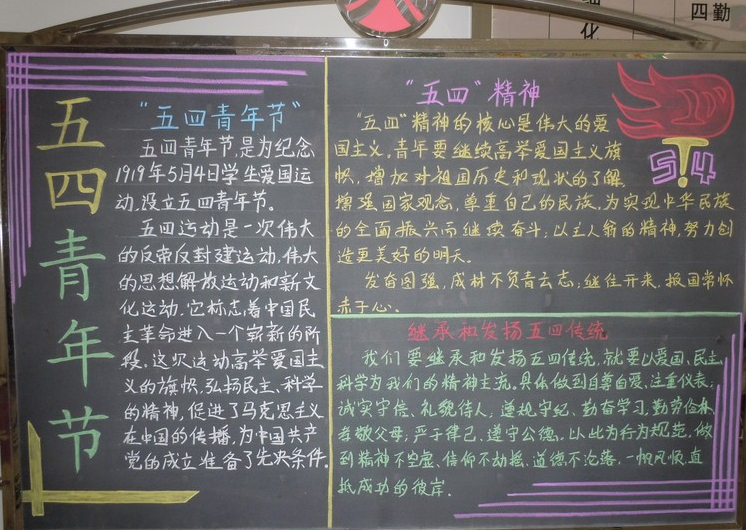 细化
四勤
五四青年节
"五四青年节"
五四青年节,是为纪念
1919年5月4日学生爱国运
动,设立五四青年节。
五四运动是一次伟大
的反帝反封建运动,伟大
的思想解放运动和新文
化运动,它标志着中国民
主革命进入一个崭新的阶
段。这次运动高举爱国主
义的旗帜,弘扬民主、科学
的精神,促进了马克思主义
在中国的传播,为中国共产
党的成立准备了先决条件。
"五四"精神
"五四"精神的核心是伟大的爱
国主义。青年要继续高举爱国主义旗
帜,增加对祖国历史和现状的了解,
增强国家观念,尊重自己的民族,为实现中华民族
的全面振兴而继续奋斗;以主人翁的精神,努力创
造更美好的明天。
发奋图强,成材不负青云志;继往开来,报国常怀
赤子心。
5.4
继承和发扬五四传统
我们要继承和发扬五四传统,就要以爱国、民主、
科学为我们的精神主流。具体做到自尊自爱、注重仪表;
诚实守信、礼貌待人;遵规守纪、勤奋学习;勤劳俭朴、
孝敬父母;严于律己、遵守公德。以此为行为规范,做
到精神不空虚、信仰不动摇、道德不沦落,一帆风顺,直
抵成功的彼岸。